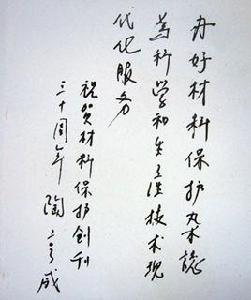 办好材料保护杂誌
為科学和技术现
代化服务
祝贺材料保护創刊
三十周年 陶亨咸